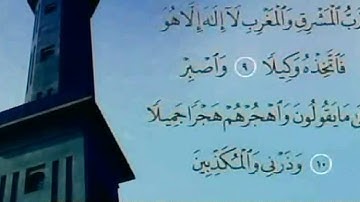 رَبُّ الْمَشْرِقِ وَالْمَغْرِبِ لَآ إِلَٰهَ إِلَّا هُوَ
فَاتَّخِذْهُ وَكِيلًا ٩ وَاصْبِرْ
عَلَىٰ مَا يَقُولُونَ وَاهْجُرْهُمْ هَجْرًا جَمِيلًا
١٠ وَذَرْنِي وَالْمُكَذِّبِينَ